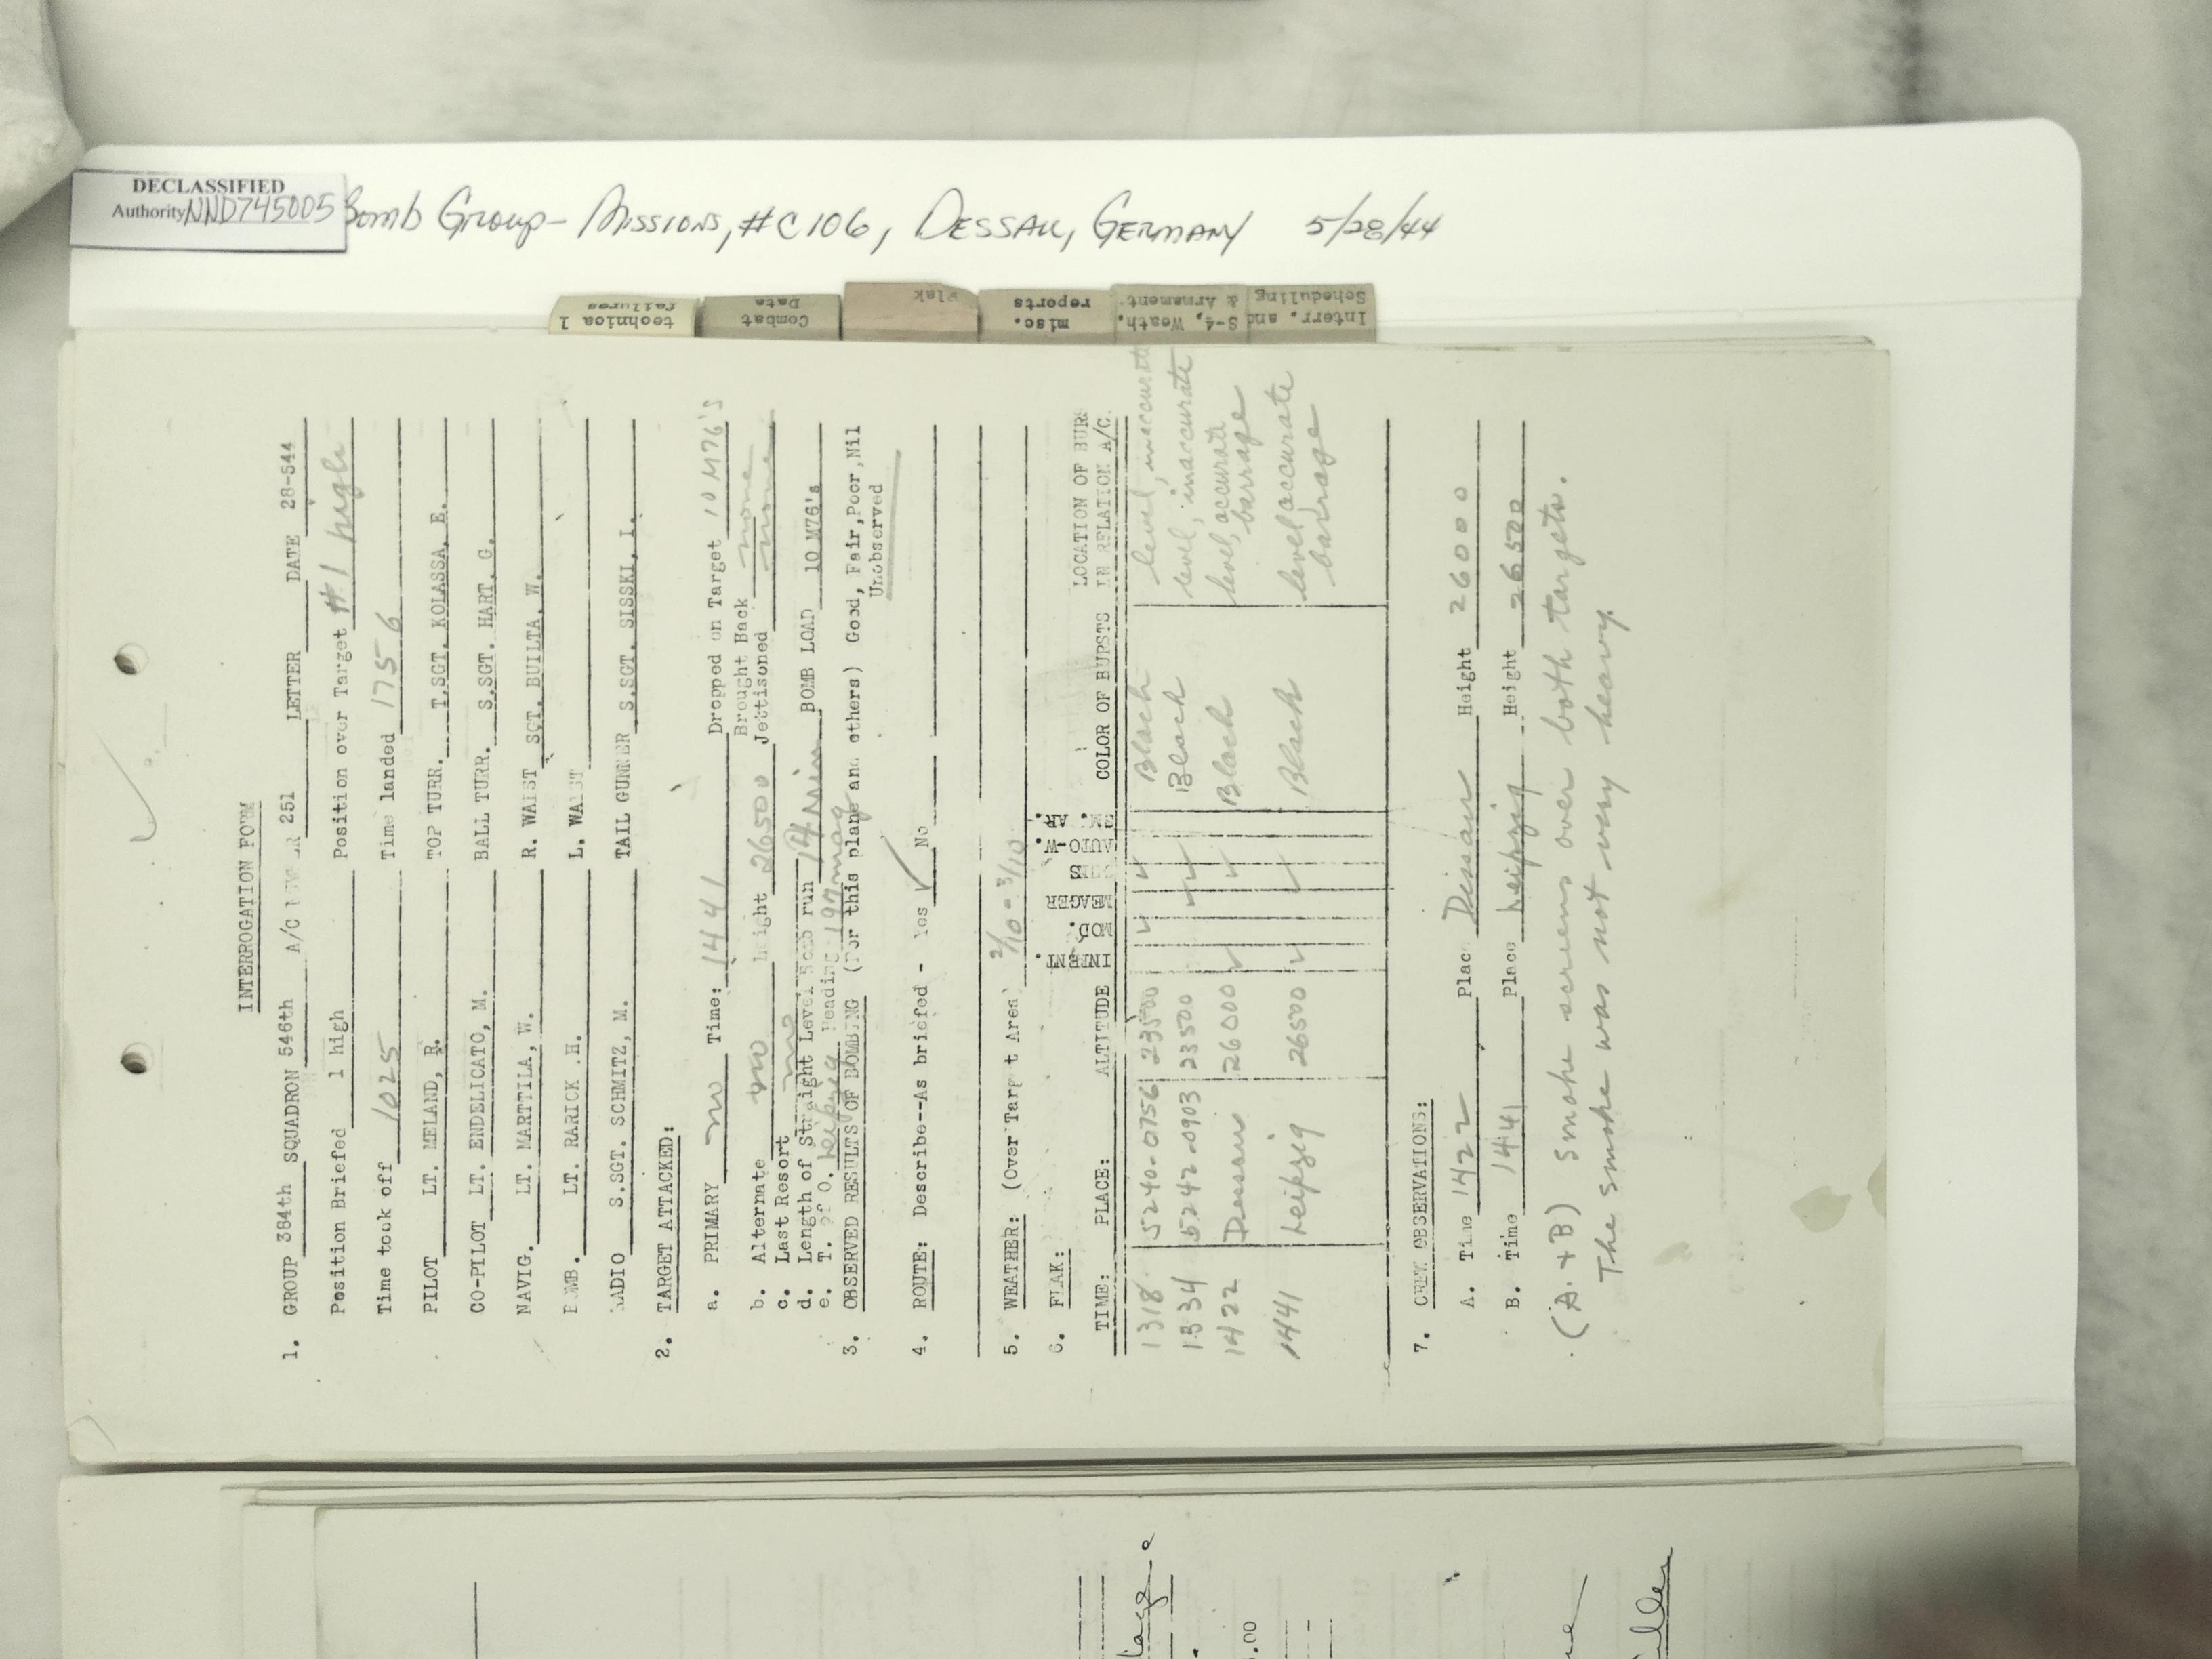 DECLASSIFIED
Authority NND745005
Bomb Group - Missions, #C106, Dessau, Germany 5/28/44
technical failures
Combat Data
Flak
misc. reports
S-4, Weath. & Armament
Interr. and Scheduling
INTERROGATION FORM
1. GROUP 384th SQUADRON 546th A/C 251 LETTER DATE 28-544
Position Briefed 1 high Position over Target #1 high
Time took off 1025 Time landed 1756
PILOT LT. MELAND, R. TOP TURR. T.SGT. KOLASSA, E.
CO-PILOT LT. ENDELICATO, M. BALL TURR. S.SGT. HART, G.
NAVIG. LT. MARTTILA, W. R. WAIST SGT. BUILTA, W.
BOMB. LT. RARICK .H. L. WAIST
RADIO S.SGT. SCHMITZ, M. TAIL GUNNER S.SGT. SISSKI, I.
2. TARGET ATTACKED:
a. PRIMARY no Time: 1441 Dropped on Target 10 M76's
Brought Back none
b. Alternate no Height 26500 Jettisoned none
c. Last Resort
d. Length of Straight Level Bomb run 14 min BOMB LOAD 10 M76's
e. T. of O. Leipzig Heading 197 mag
3. OBSERVED RESULTS OF BOMBING (For this plane and others) Good, Fair,Poor,Nil
Unobserved
4. ROUTE: Describe--As briefed - Yes ✓ No
5. WEATHER: (Over Target Area) 2/10 - 3/10
6. FLAK:
TIME: PLACE: ALTITUDE INTENT. MOD. MEAGER GUNS AUTO-W. SM. AR. COLOR OF BURSTS LOCATION OF BUR IN RELATION A/C.
1318 5240-0756 23500 ✓ ✓ Black level, inaccurate
1334 5242-0903 23500 ✓ ✓ Black level, inaccurate
1422 Dessau 26000 ✓ ✓ Black level, accurate barrage
1441 Leipzig 26500 ✓ ✓ Black level accurate barrage
7. CREW OBSERVATIONS:
A. Time 1422 Place Dessau Height 26000
B. Time 1441 Place Leipzig Height 26500
(A. + B) Smoke screens over both targets.
The smoke was not very heavy.
.00